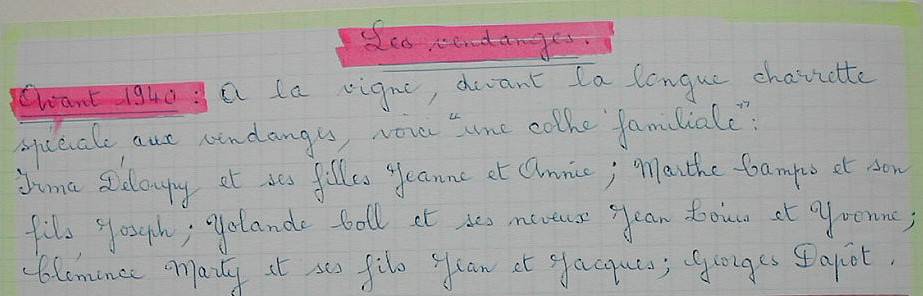 Les vendanges.
Avant 1940 : A la vigne, devant la longue charrette
spéciale aux vendanges, voici "une colhe familiale" :
Irma Déloupy et ses filles Jeanne et Annie ; Marthe Camps et son
fils Joseph ; Yolande Coll et ses neveux Jean Louis et Yvonne ;
Clémence Marty et ses fils Jean et Jacques ; Georges Dapôt.